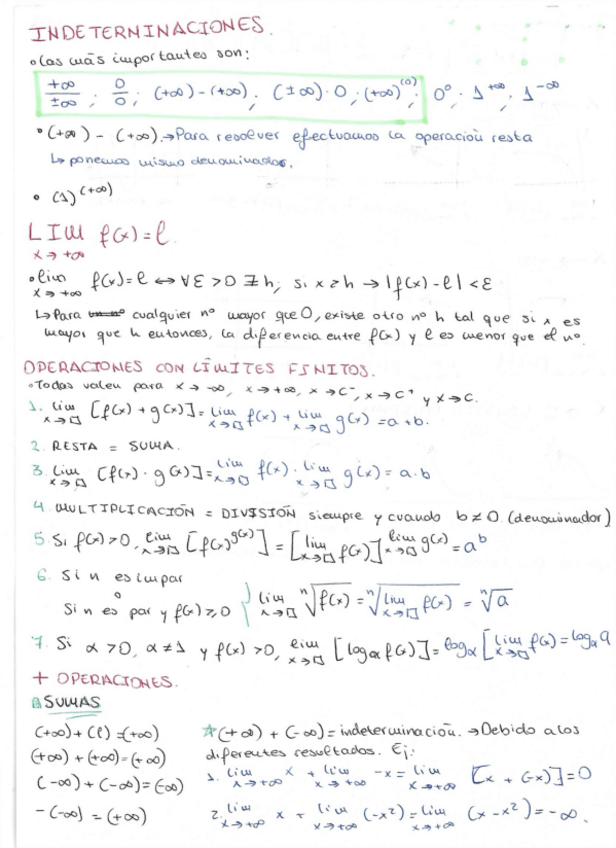 INDETERMINACIONES.
• Las más importantes son:
+∞/±∞ ; 0/0 ; (+∞)-(+∞) ; (±∞)·0 ; (+∞)^(0) ; 0^0 ; 1^+∞ ; 1^-∞
• (+∞) - (+∞). → Para resolver efectuamos la operación resta
↳ ponemos mismo denominador.
• (1)^(+∞)
LIM f(x) = l
x→+∞
• lim f(x) = l ↔ ∀ε > 0 ∃h, si x ≥ h → |f(x) - l| < ε
x→+∞
↳ Para cualquier nº mayor que 0, existe otro nº h tal que si x es
mayor que h entonces, la diferencia entre f(x) y l es menor que el nº.
OPERACIONES CON LÍMITES FINITOS.
• Todas valen para x→-∞, x→+∞, x→c⁻, x→c⁺ y x→c.
1. lim x→□ [f(x) + g(x)] = lim x→□ f(x) + lim x→□ g(x) = a + b.
2. RESTA = SUMA.
3. lim x→□ [f(x) · g(x)] = lim x→□ f(x) · lim x→□ g(x) = a·b
4. MULTIPLICACIÓN = DIVISIÓN siempre y cuando b ≠ 0 (denominador)
5. Si f(x) > 0, lim x→□ [f(x)^g(x)] = [lim x→□ f(x)]^lim x→□ g(x) = a^b
6. Si n es impar
o
Si n es par y f(x) ≥ 0 } lim x→□ ⁿ√f(x) = ⁿ√lim x→□ f(x) = ⁿ√a
7. Si α > 0, α ≠ 1 y f(x) > 0, lim x→□ [logα f(x)] = logα [lim x→□ f(x) = logα a
+ OPERACIONES.
SUMAS
(+∞) + (l) = (+∞)
(+∞) + (+∞) = (+∞)
(-∞) + (-∞) = (-∞)
-(-∞) = (+∞)
☆ (+∞) + (-∞) = indeterminación. → Debido a los
diferentes resultados. Ej:
1. lim x→+∞ x + lim x→+∞ -x = lim x→+∞ [x + (-x)] = 0
2. lim x→+∞ x + lim x→+∞ (-x²) = lim x→+∞ (x - x²) = -∞.